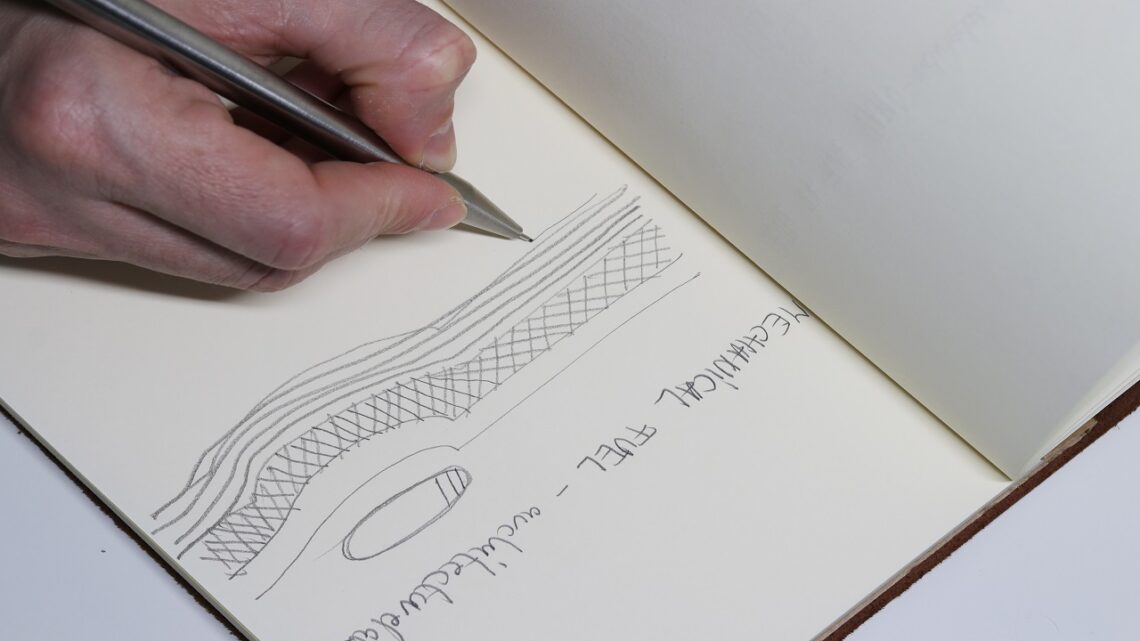 MECHANICAL FUEL - architecture